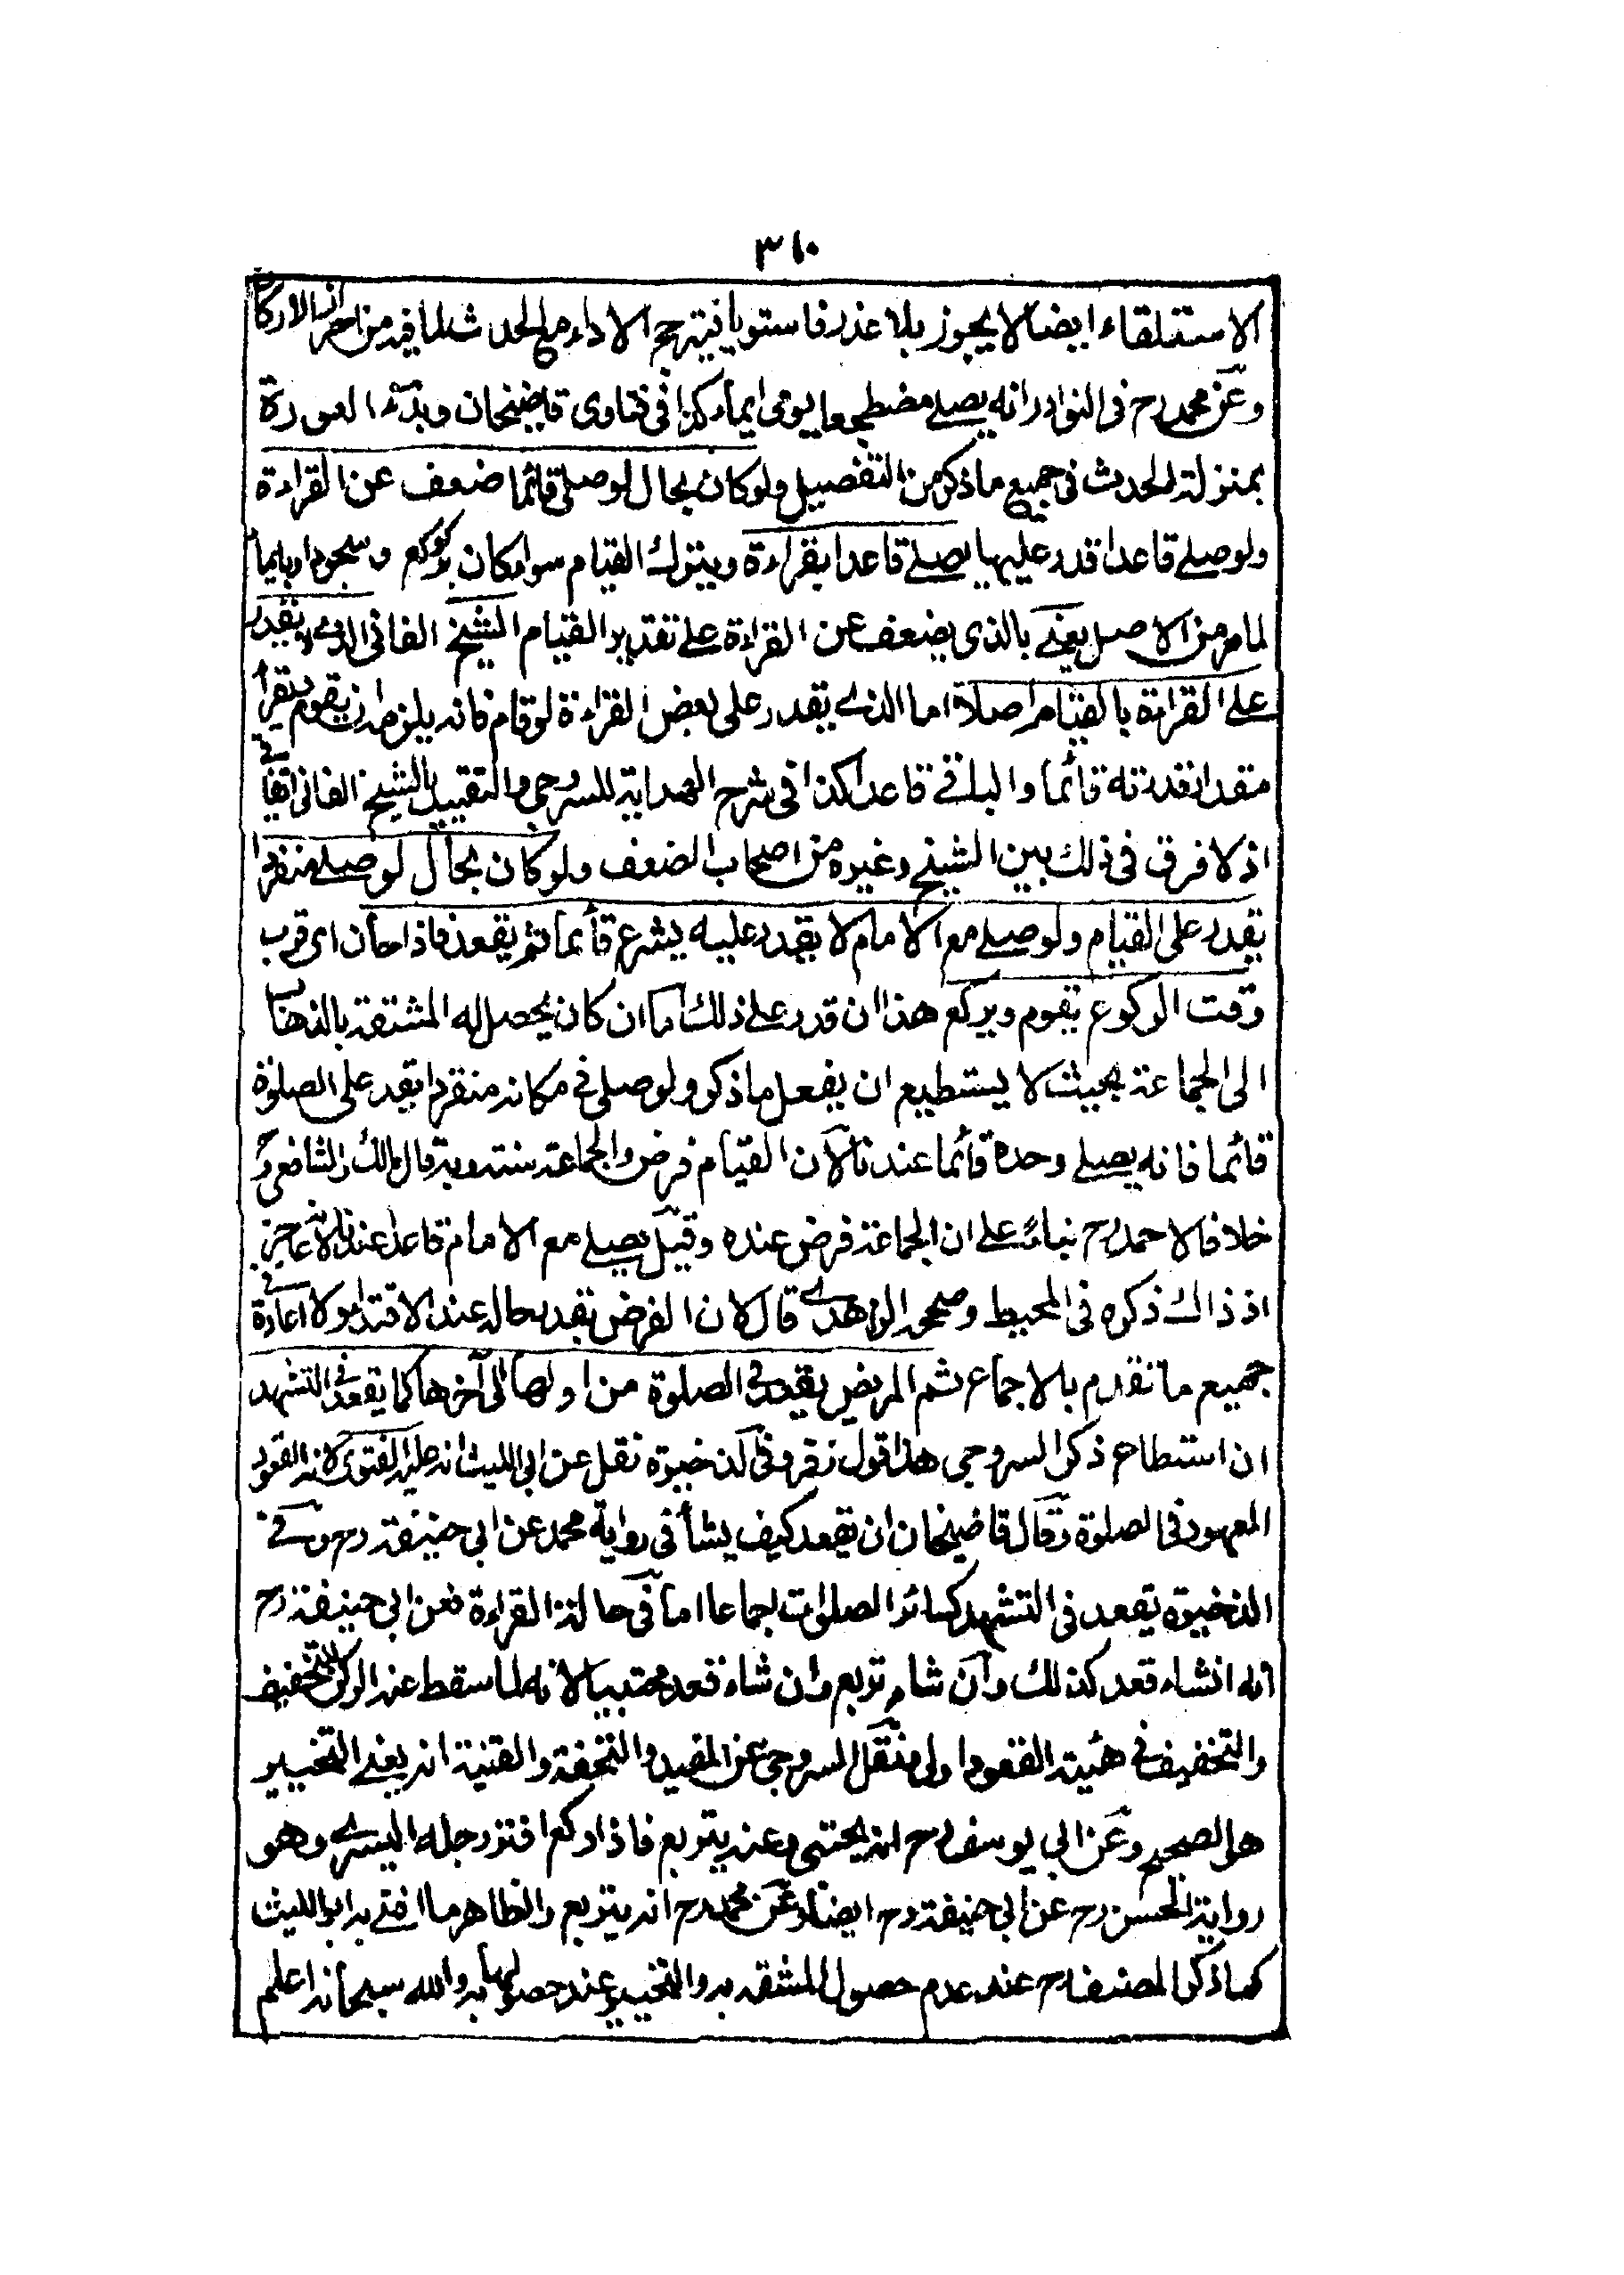 ٣١٠
الاستلقاء ايضا لا يجوز بلا عذر فاستويا فيترجح الاداء مع الحدث لما فيه من احراز الاركان
وعن محمد رح فى النوادر انه يصلے مضطجعا يومى ايماء كذا فى فتاوى قاضيخان وبدء العورة
بمنزلة الحدث فى جميع ما ذكر من التفصيل ولو كان بحال لو صلى قائما ضعف عن القراءة
ولو صلے قاعدا قدر عليها يصلے قاعدا بقراءة ويترك القيام سواء كان بركوع وسجود او بايماء
لما مر من الاصل يعنے بالذى يضعف عن القراءة على تقدير القيام الشيخ الفانى الذى لا يقدر
على القراءة بالقيام اصلا اما الذى يقدر على بعض القراءة لو قام فانه يلزمه ان يقوم يقرأ
مقدار قدرته قائما والباقے قاعدا كذا فى شرح الهداية للسروجى والتقييد بالشيخ الفانى اتفاقے
اذ لا فرق فى ذلك بين الشيخ وغيره من اصحاب الضعف ولو كان بحال لو صلے منفردا
يقدر على القيام ولو صلے مع الامام لا يقدر عليه يشرع قائما ثم يقعد فاذا حان اى قرب
وقت الركوع يقوم ويركع هذا ان قدر على ذلك اما ان كان يحصل له المشقة بالذهاب
الى الجماعة بحيث لا يستطيع ان يفعل ما ذكر ولو صلى فى مكانه منفردا يقدر على الصلوة
قائما فانه يصلے وحده قائما عندنا لان القيام فرض والجماعة سنة وبه قال مالك والشافعى رح
خلافا لاحمد رح بناء على ان الجماعة فرض عنده وقيل يصلے مع الامام قاعدا عندنا لانه عاجز
اذ ذاك ذكره فى المحيط وصححه الزاهدے قال لان الفرض يقدر بحاله عند الاقتداء ولا اعادة فے
جميع ما تقدم بالاجماع ثم المريض يقعد فى الصلوة من اولها الى آخرها كما يقعد فى التشهد
ان استطاع ذكر السروجى هذا قول زفر وفى الذخيرة نقل عن ابى الليث انه عليه الفتوى لانه القعود
المعهود فى الصلوة وقال قاضيخان ان يقعد كيف يشأ فى رواية محمد عن ابى حنيفة رح وفے
الذخيرة يقعد فى التشهد كسائر الصلوات اجماعا اما فى حالة القراءة فعن ابى حنيفة رح
انه انشاء قعد كذلك وان شاء تربع وان شاء قعد محتبيا لانه لما سقط عنه الركن للتخفيف
والتخفيف فى هيئة القعود اولى ونقل السروجى عن المفيد والتحفة والقنية انه يعنے التخيير
هو الصحيح وعن ابى يوسف رح انه يحتبى وعنه يتربع فاذا ركع افترش رجله اليسرے وهو
رواية الحسن رح عن ابى حنيفة رح ايضا وعن محمد رح انه يتربع والظاهر ما افتے به ابو الليث
كما ذكر المصنف رح عند عدم حصول المشقة به والتخيير عند حصولها به والله سبحانه اعلم